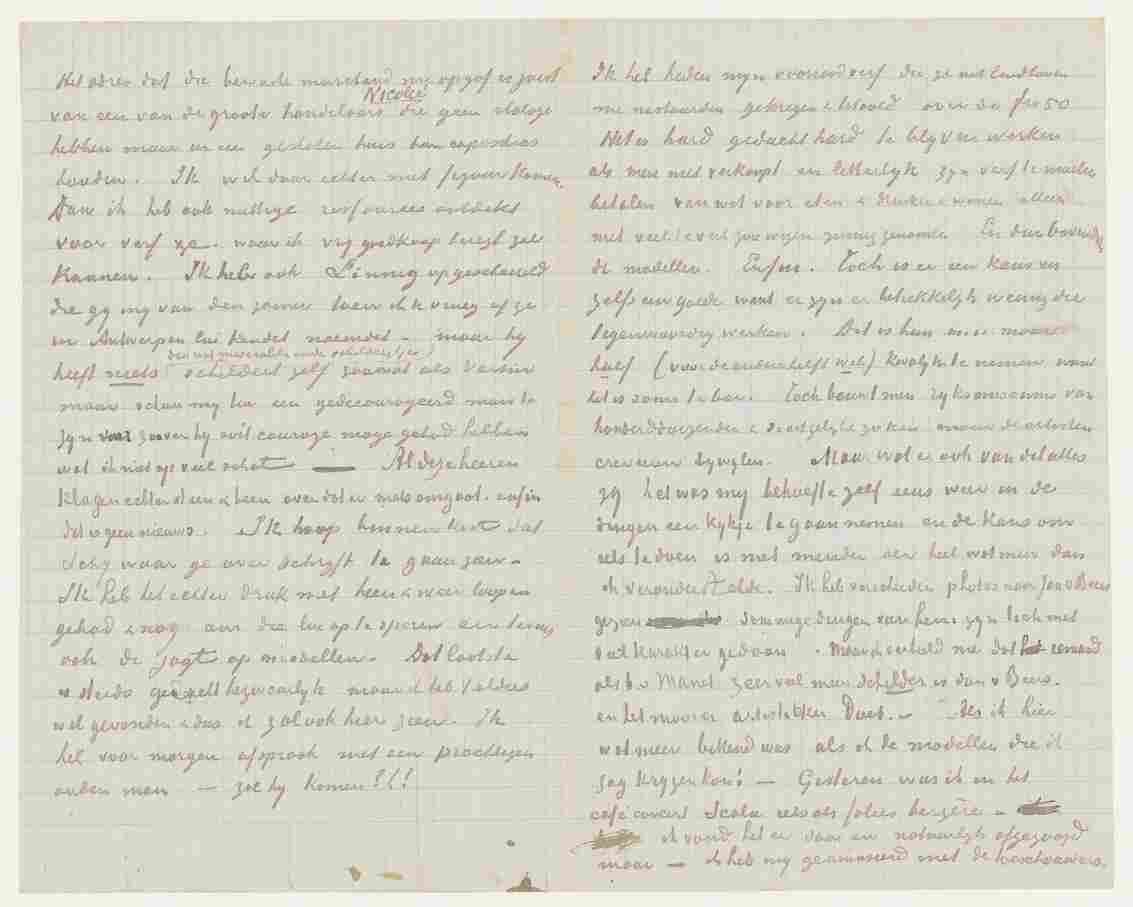 Het adres dat die bewuste marchand me opgaf is juist
Nicolié
van een van de groote handelaars die geen étalage
hebben maar in een gesloten huis hun exposities
houden. Ik wil daar echter niet figureeren.
Dan ik heb ook nuttige ressources ontdekt
voor verf &c. waar ik vrij goedkoop teregt zal
kunnen. Ik heb ook Linnig opgescharreld
die gij mij van den zomer toen ik U vroeg of ge
in Antwerpen lui kendet noemdet – maar hij
dan wat miserabele oude schilderijtjes
heeft niets schildert zelf zoowat als Verveer
maar scheen mij toe een gedecourageerd man te
zijn voor zoover hij ooit courage moge gehad hebben
wat ik niet op veel schat — Al deze heeren
klagen echter steen & been over dat er niets omgaat. enfin
dat is geen nieuws. Ik hoop binnenkort dat
Schij waar ge over schrijft te gaan zien –
Ik heb het echter druk met heen & weer loopen
gehad & nog om die lui op te sporen en intusschen
ook de jagt op modellen. Dat laatste
is steeds geweldig bezwaarlijk maar ik heb ze altes
wel gevonden & dus ik zal ook hier zien. Ik
heb voor morgen afspraak met een prachtigen
ouden man — zal hij komen?!!
Ik heb heden mijn voorraad verf die ze uit Eindhoven
me nastuurden gekregen & betaald over de frs 50
Het is hard gedacht hard te blijven werken
als men niet verkoopt en letterlijk zijn verf te moeten
betalen van wat voor eten & drinken & wonen alleen
niet veel te veel zou wezen zuinig genomen. En dan bovendien
de modellen. Enfin. Toch is er een kans en
zelfs een goede want er zijn er betrekkelijk weinig die
tegenwoordig werken. Dat is hun maar
half (voor de andere helft wel) kwalijk te nemen want
het is soms te boos. Toch bouwt men rijksmuseums van
honderdduizenden & dergelijke zaken maar de artisten
creveeren dikwijls. Maar wat er ook van dat alles
zij het was mij behoefte zelf eens weer in de
dingen een kijkje te gaan nemen en de kans om
iets te doen is niet minder eer heel wat meer dan
ik veronderstelde. Ik heb verscheiden photos naar Jan v Beers
gezien sommige dingen van hem zijn toch met
veel karakter gedaan. Maar ik verbeeld me dat iemand
als b.v Manet zeer veel meer schilder is dan v Beers.
en het mooier artistieker doet. – Als ik hier
wat meer bekend was als ik de modellen die ik
zag krijgen kon! — Gisteren was ik in het
café concert Scala iets als folies bergère –
ik vond het er saai en natuurlijk afgezaagd
maar — ik heb mij geamuseerd met de toeschouwers.